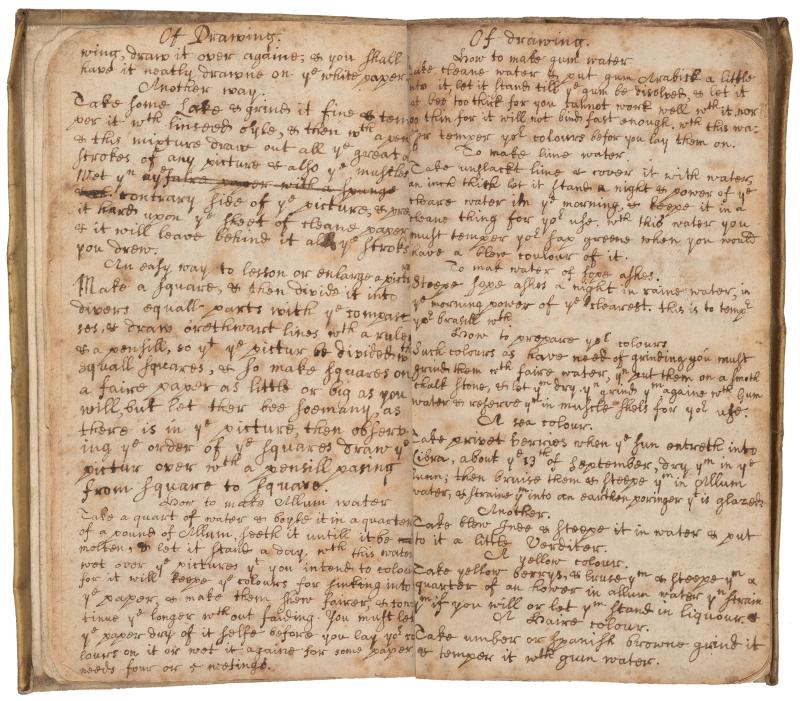 Of Drawing.
wing, draw it over againe, & you shall
have it neatly drawne on ye white paper
Another way.
Take some Lake & grind it fine & tem
per it wth linseed oyle, & then wth a pen
& this mixture draw out all ye great
strokes of any picture & also ye muscles
Wet yn ye faire paper with a spunge
contrary side of ye picture, & pre
it hard upon ye sheet of cleane paper
& it will leave behind it all ye stroks
you drew.
An easy way to lesson or enlarge a pictu
Make a square, & then divide it into
divers equall parts with ye compas
ses, & draw overthwart lines wth a rule
& a pensill, so yt ye pictur be divided
equall squares, & so make squares on
a faire paper as little or big as you
will, but let ther bee soemany, as
there is in ye picture, then observ
ing ye order of ye squares draw ye
pictur over wth a pensill pasing
from square to square.
How to make Allum water
Take a quart of water & boyle it in a quarter
of a pound of Allum, seeth it untill it be
molten, & let it stand a day, wth this water
wet over ye pictures yt you intend to colou
for it will keepe ye colours for sinking into
ye paper, & make them shew fairer, & con
tinue ye longer wthout faiding. You must let
ye paper dry of it selfe before you lay yor co
lours on it or wet it againe for some paper
needs four or 5 wetings.
Of drawing.
How to make gum water
Take cleane water & put gum Arabick a little
into it, let it stand till ye gum be disolved, & let it
not bee too thick for you cannot work well wth it, nor
too thin for it will not bind fast enough. wth this wa-
ter temper yor colours befor you lay them on.
To make lime water.
Take unslackt lime & cover it with water,
an inch thick let it stand a night & power of ye
cleare water in ye morning, & keepe it in a
cleane thing for yor use. wth this water you
must temper yor sap greene when you would
have a blew coulour of it.
To mak water of sope ashes.
Steepe sope ashes a night in raine water, in
ye morning power of ye clearest. this is to tempr
yor brasill wth
How to prepare yor colours
Such colours as have need of grinding you must
grind them wth faire water, yn put them on a smoth
chalk stone, & let ym dry. yn grind ym againe wth gum
water & reserve ym in muscle shels for yor use.
A sea colour.
Take privet berries when ye sun entreth into
Libra, about ye 13th of September, dry ym in ye
sunn; then bruise them & steepe ym in Allum
water, & straine ym into an earthen poringer yt is glazed
Another.
Take blew Inde & steepe it in water & put
to it a little Verditer.
A yellow colour.
Take yellow berrys, & bruse ym & steepe ym a
quarter of an hower in allum water yn strain
ym if you will or let ym stand in liquour. &
A Haire colour.
Take umber or spanish browne grind it
& temper it wth gum water.